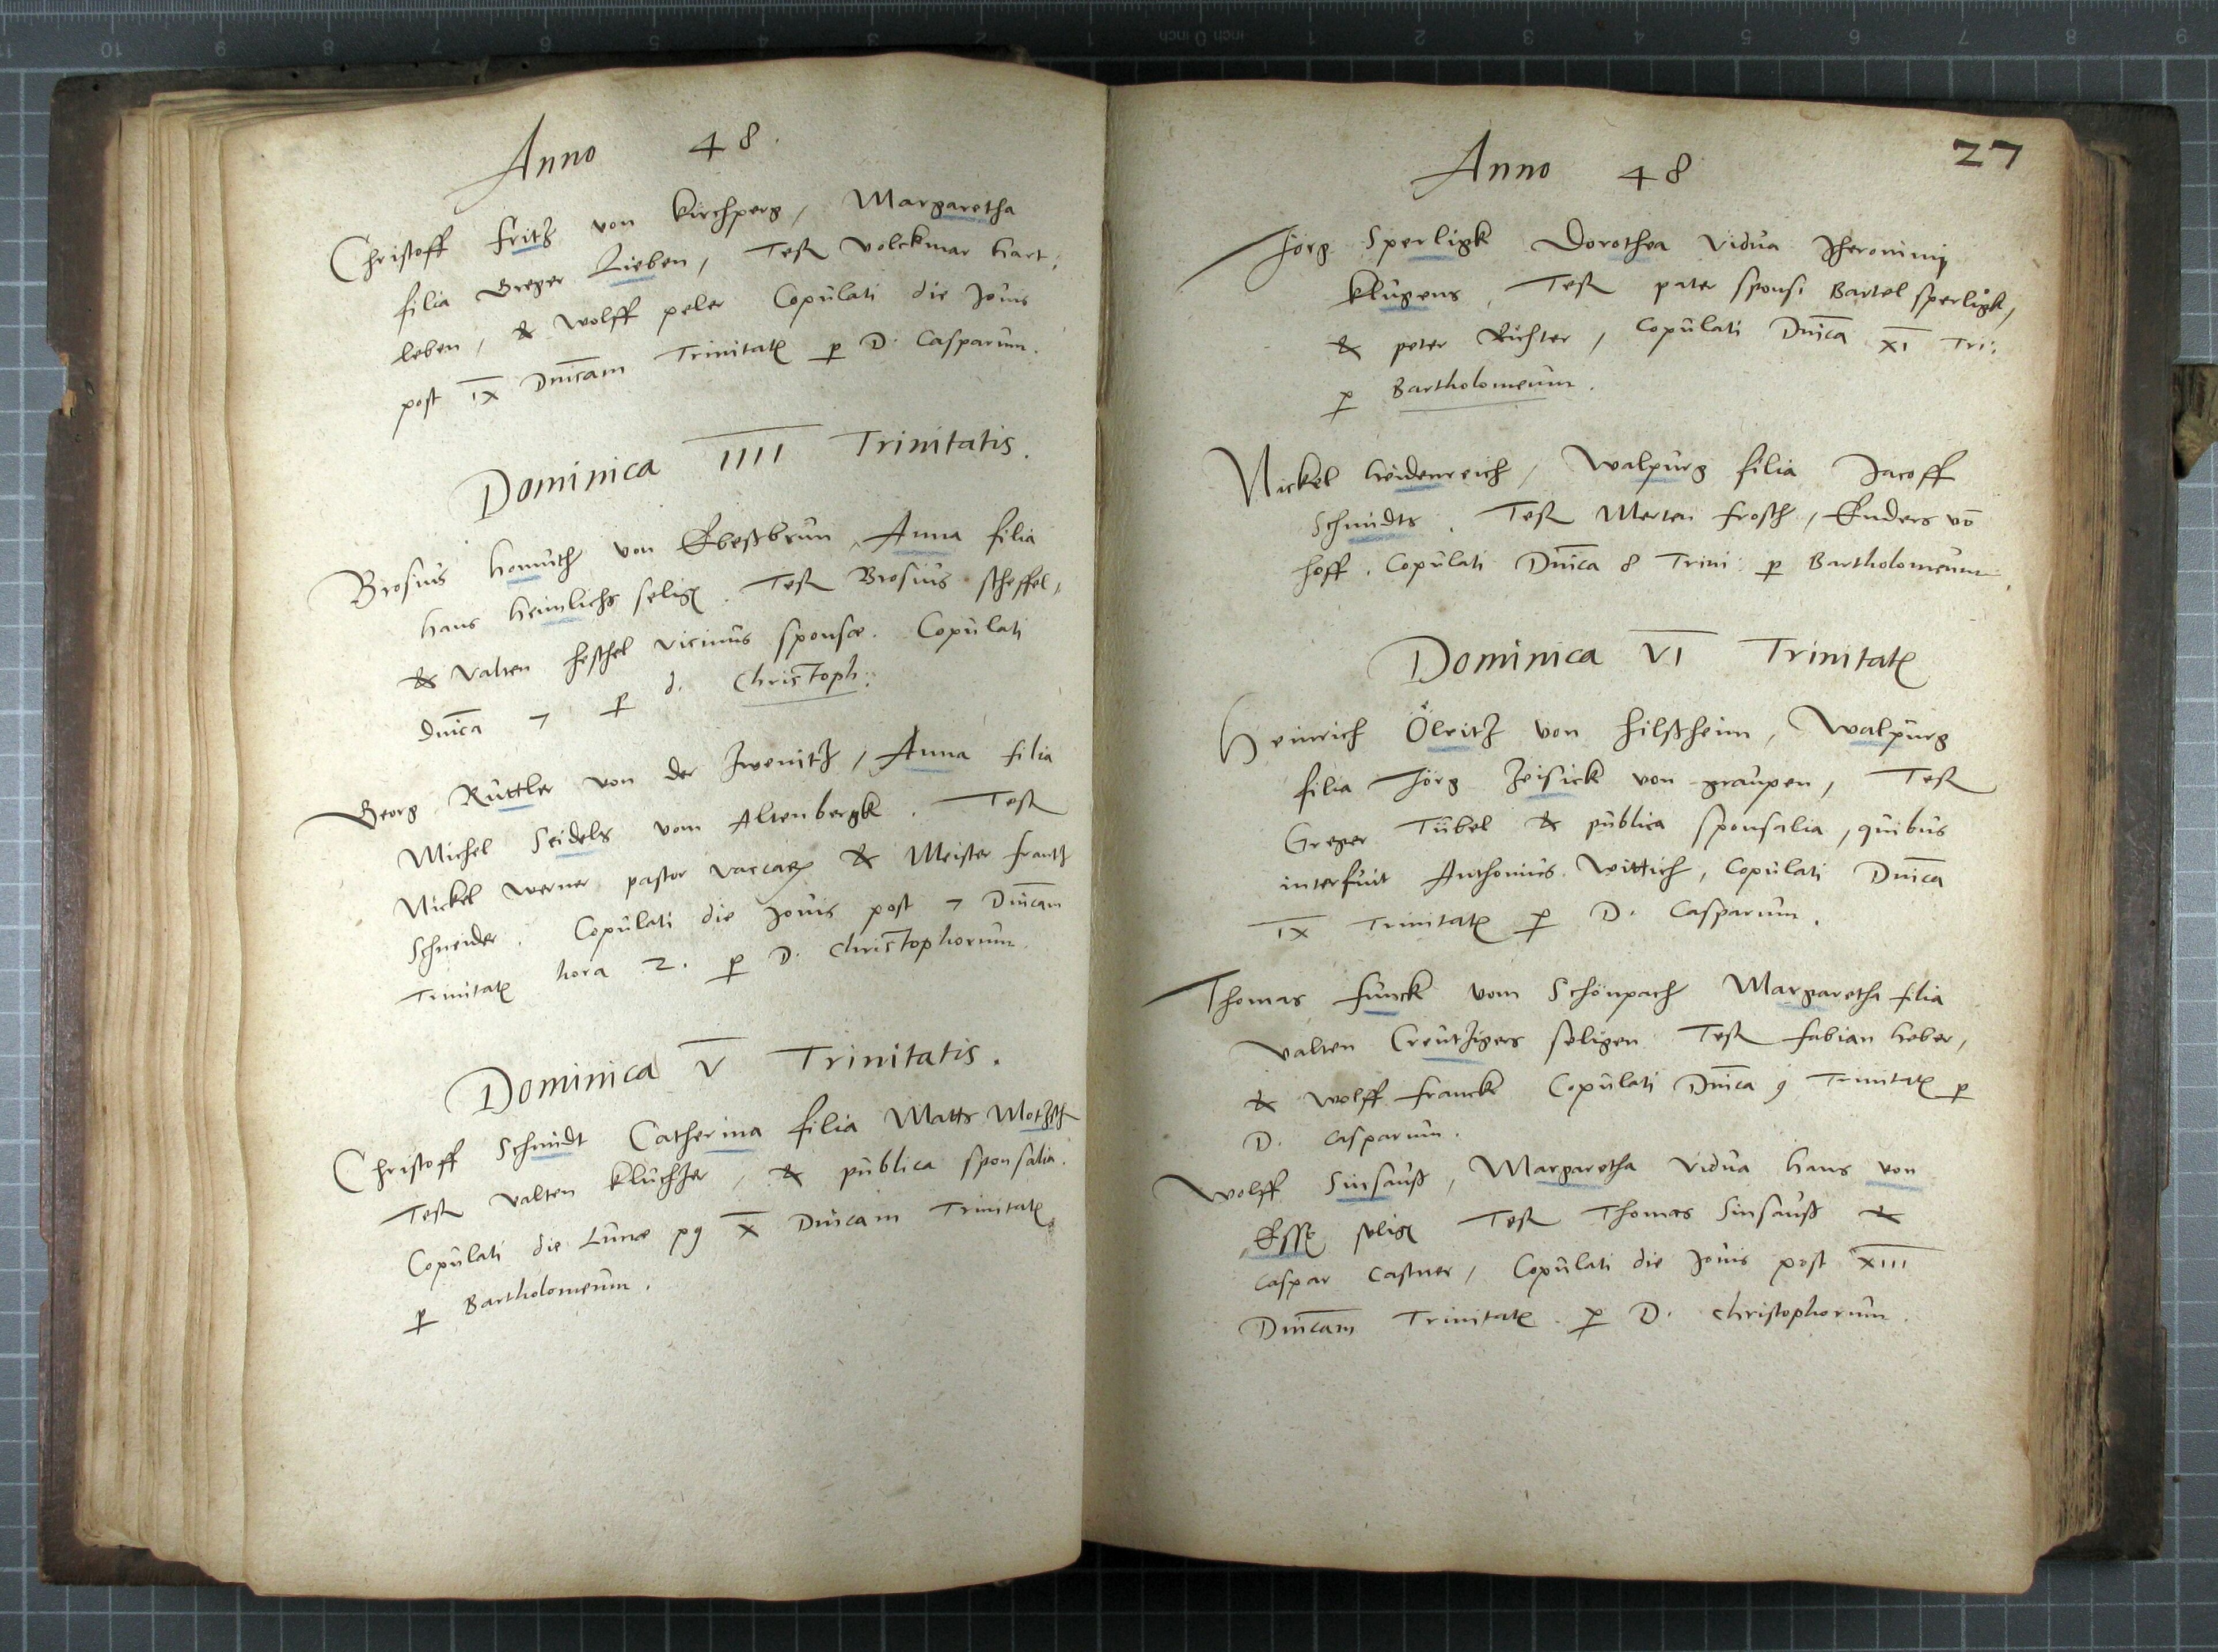 Anno 48.
Christoff Fritz von Kirchperg, Margaretha
filia Greger Lieben, Test Volckmar hart:
leben, & Wolff peler Copulati die Jouis
post IX Dnicam Trinitatꝭ p D. Casparum.
Dominica IIII Trinitatis.
Brosius Homuth von Ebeßbrun, Anna filia
Hans Heinlichs seligꝭ. Test Brosius scheffel,
& Valten heschel vicinus sponsæ. Copulati
dnica 7 p d. Christoph:
Georg Ruttler von der Zwenitz, Anna filia
Michel Seidels vom Altenbergk. Test
Nickel Werner pastor & Meister Frantz
Schneider. Copulati die Jouis post 7 Dnicam
Trinitatꝭ hora 2. p D. Christophorum.
Dominica V Trinitatis.
Christoff Schmidt Catherina filia Matts
Test Valten & publica sponsalia.
Copulati die Lunæ p9 X Dnicam Trinitatꝭ
p Bartholomeum.
Anno 48
27
Jorg Sperligk Dorothea vidua Jheronimj
Klugens, Test pater sponsi Bartel sperligk,
& peter Richter, Copulati Dnica XI Tri:
p Bartholomeum.
Nickel Heidenreich, Walpurg filia Jacoff
Schmidts. Test Merten Frosch, Enders vō
hoff. Copulati Dnica 8 Trini: p Bartholomeum.
Dominica VI Trinitatꝭ
Heinrich Ölritz von Hilßheim, Walpurg
filia Jörg Zeisick von graupen, Test
Greger Tübel & publica sponsalia, quibus
interfuit Anthonius Wittich, Copulati Dnica
IX Trinitatꝭ p D. Casparum.
Thomas Funck vom Schönpach Margaretha filia
Valten Creutzigers seligen Test Fabian Heber,
& Wolff Franck Copulati Dnica 9 Trinitatꝭ p
D. Casparum.
Wolff Sinsauß, Margaretha vidua Hans von
Essꝭ seligꝭ Test Thomas Sinsauß &
Caspar Castner, Copulati die Jouis post XIII
Dnicam Trinitatꝭ. p D. Christophorum.